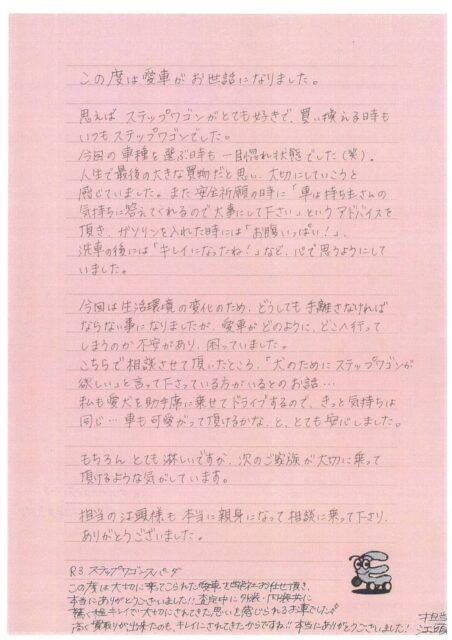 この度は愛車がお世話になりました。
思えば ステップワゴンがとても好きで、買い換える時も
いつもステップワゴンでした。
今回の車種を選ぶ時も 一目惚れ状態でした(笑)。
人生で最後の大きな買物だと思い、大切にしていこうと
感じていました。また安全祈願の時に「車は持ち主さんの
気持ちに答えてくれるので大事にして下さい」というアドバイスを
頂き、ガソリンを入れた時には「お腹いっぱい!」、
洗車の後には「キレイになったね!」など、心で思うようにして
いました。
今回は生活環境の変化のため、どうしても手離さなければ
ならない事になりましたが、愛車がどのように、どこへ行って
しまうのか不安があり、困っていました。
こちらで相談させて頂いたところ、「犬のためにステップワゴンが
欲しい」と言って下さっている方がいるとのお話…
私も愛犬を助手席に乗せてドライブするので、きっと気持ちは
同じ…車も可愛がって頂けるかな、と、とても安心しました。
もちろん とても淋しいですが、次のご家族が大切に乗って
頂けるような気がしています。
担当の江頭様も本当に親身になって相談に乗って下さり、
ありがとうございました。
R3 ステップワゴンスパーダ
この度は大切に乗ってこられた愛車を お任せ頂き、
本当にありがとうございました!! 査定中に外装・内装共に
キレイで大切にされてきた思いを感じられるお車でした。
高く買取りが出来たのも、キレイにされてきたからですね!! 本当にありがとうございました!
担当
江頭